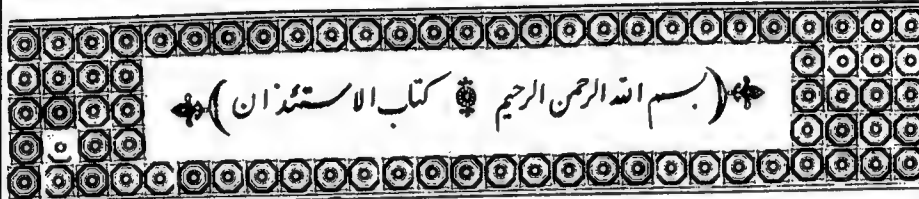 ﴿بسم الله الرحمن الرحيم ۞ كتاب الاستئذان﴾